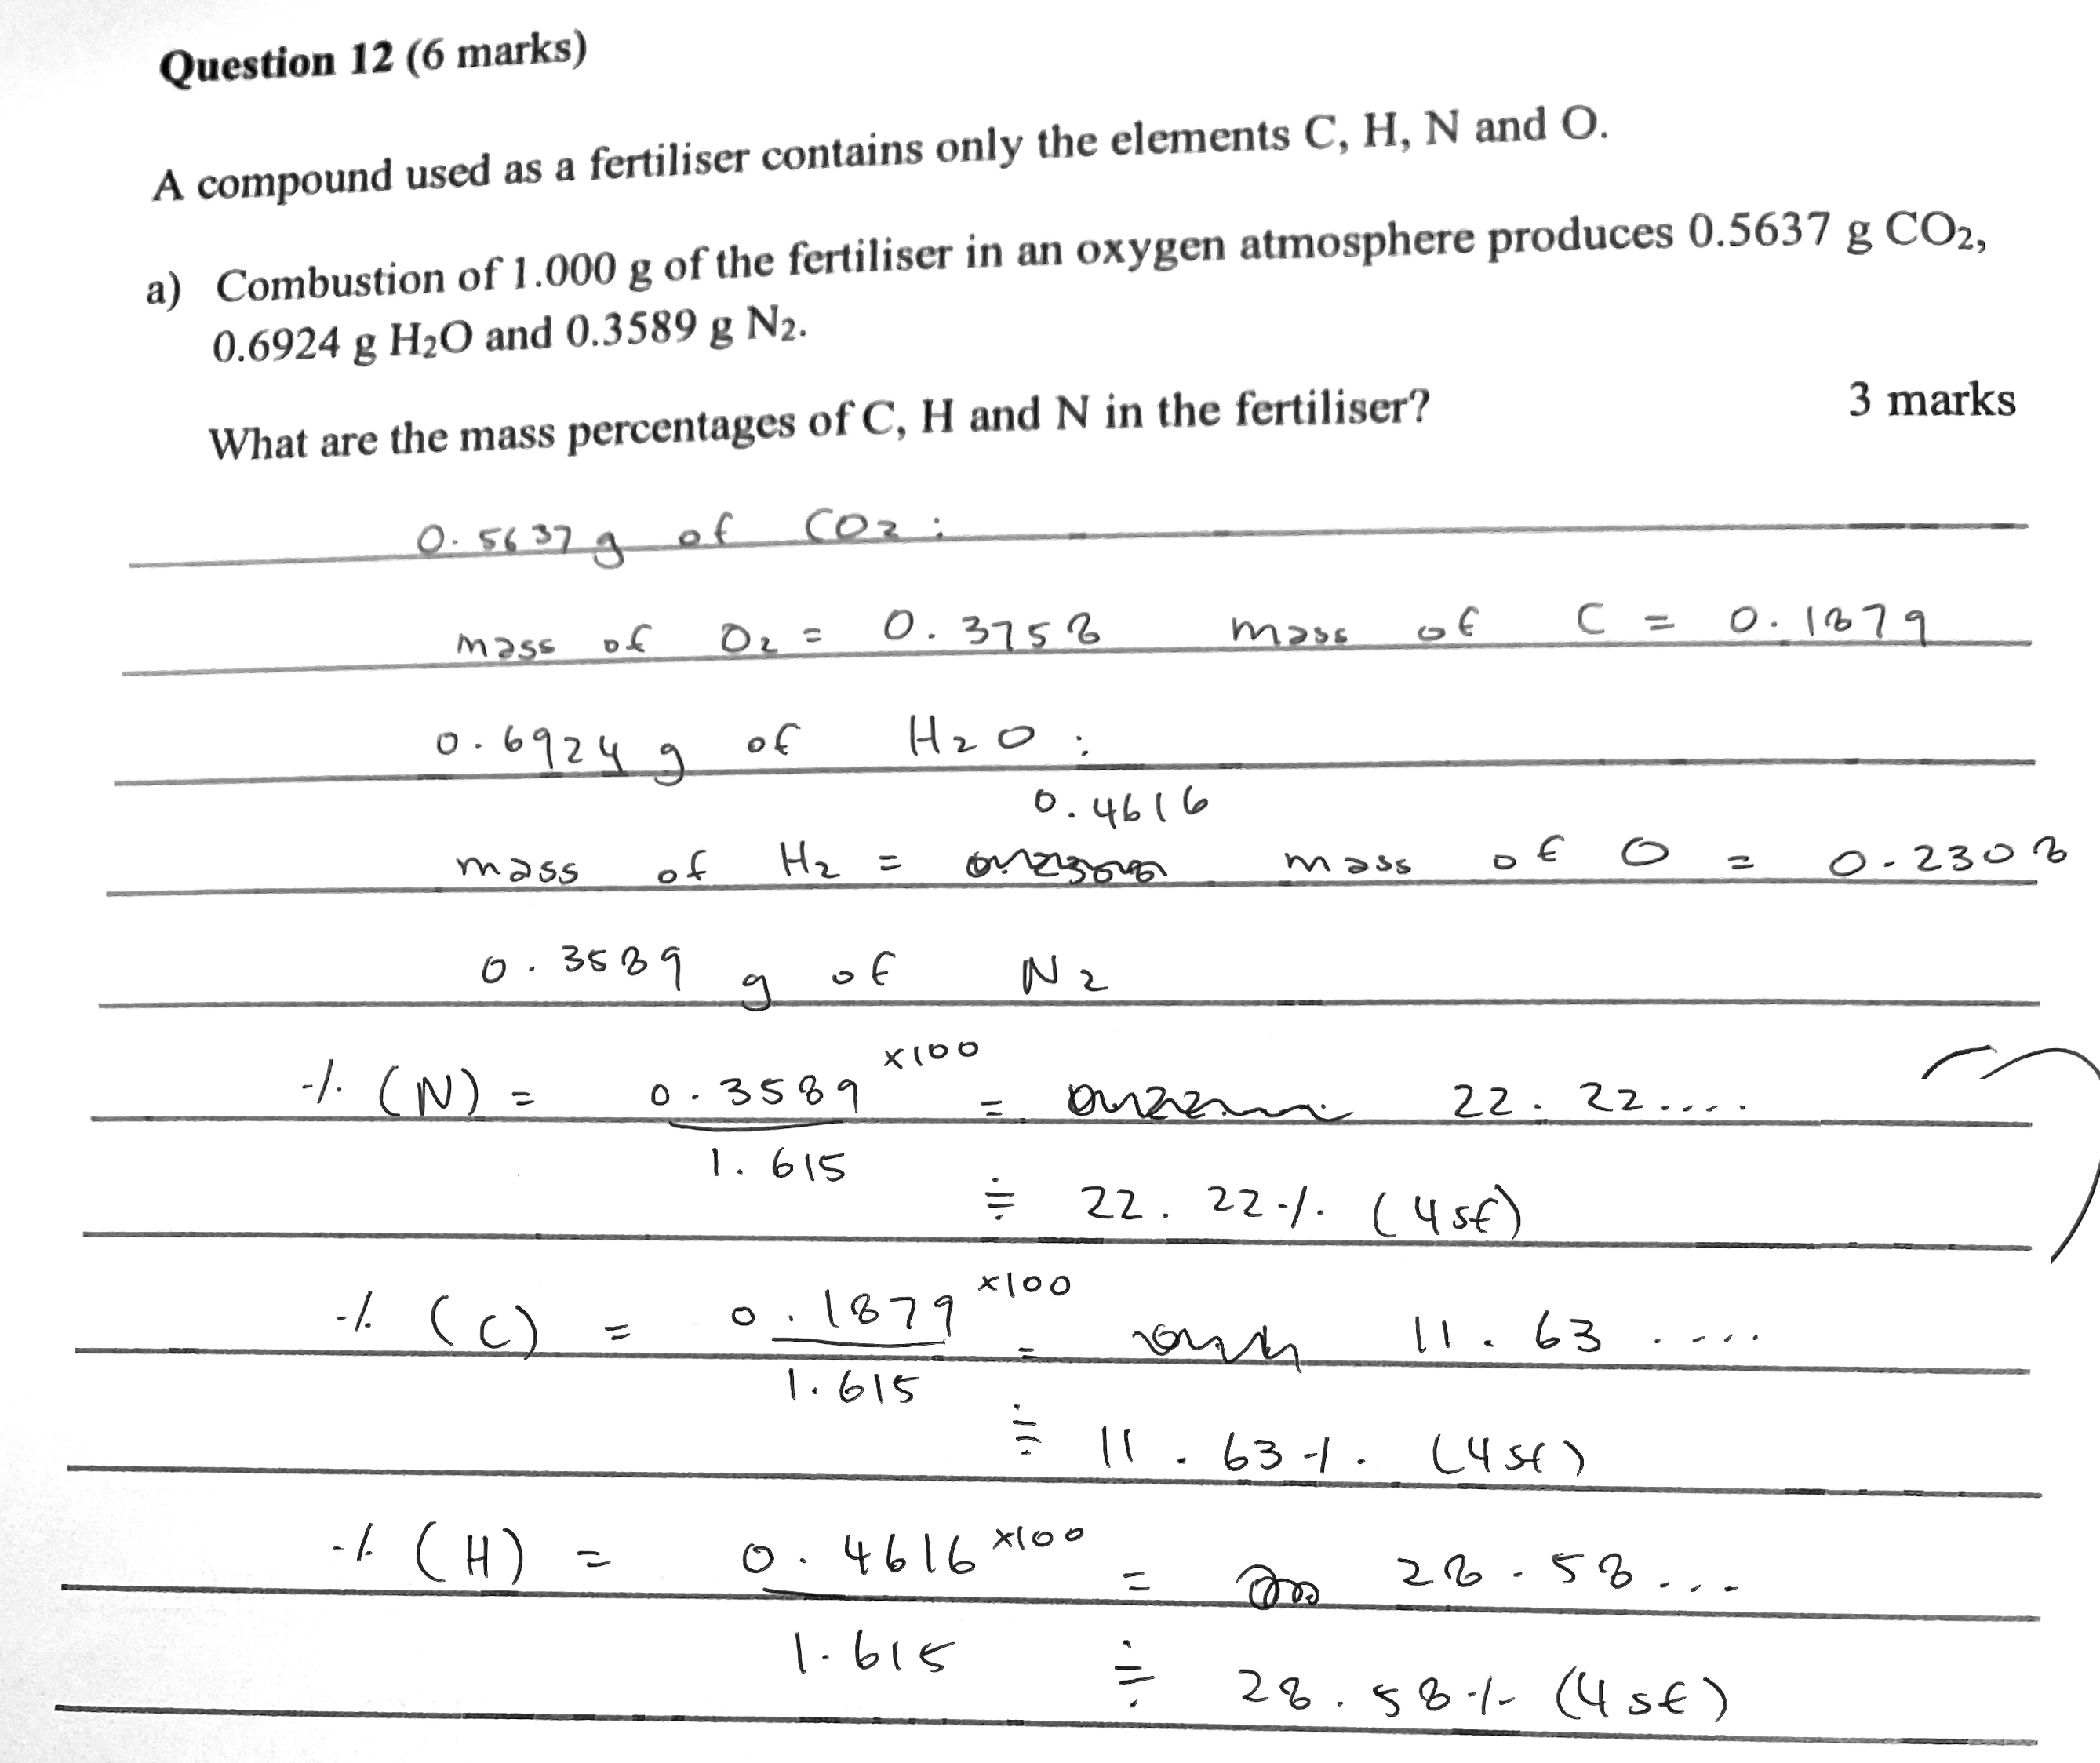 Question 12 (6 marks)
A compound used as a fertiliser contains only the elements C, H, N and O.
a) Combustion of 1.000 g of the fertiliser in an oxygen atmosphere produces 0.5637 g CO₂,
0.6924 g H₂O and 0.3589 g N₂.
What are the mass percentages of C, H and N in the fertiliser? 3 marks
0.5637 g of CO₂ :
mass of O₂ = 0.3758 mass of C = 0.1879
0.6924 g of H₂O :
0.4616
mass of H₂ = mass of O = 0.2308
0.3589 g of N₂
% (N) = 0.3589 ×100 = 22.22....
1.615
≑ 22.22% (4sf)
% (C) = 0.1879 ×100 = 11.63....
1.615
≑ 11.63%. (4sf)
% (H) = 0.4616 ×100 = 28.58...
1.615
≑ 28.58% (4sf)